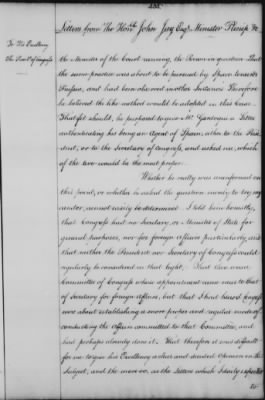 Letters from The Hon'ble John Jay Esqr. Minister Plenip. &c
To His Excellency
The Presdt. of Congress
the Minister of the Court receiving, the Power in question. That
the same practice was about to be pursued by Spain towards
Prussia, and had been observed in other Instances. Therefore
he believed the like method would be adopted in this Case.
That he should, be prepared to give Mr. Gardoqui a Letter
authenticating his being an Agent of Spain, either to the Presi-
dent, or to the Secretary of Congress, and asked me, which
of the two would be the most proper.
Whether he really was uninformed on
this point, or whether he asked the question merely to try my
candor, cannot easily be determined. I told him honestly,
that Congress had no Secretary, or Minister of State for
general purposes, nor for foreign affairs particularly, and
that neither the President nor Secretary of Congress could
regularly be considered in that light. That there was a
Committee of Congress whose appointment came near to that
of Secretary for foreign affairs, but that I had heard Congress
was about establishing a more proper and regular mode of
conducting the affairs committed to that Committee, and
had perhaps already done it. That therefore it was difficult
for me to give his Excellency a clear and decided Opinion on the
Subject, and the more so, as the Letters which I daily expected